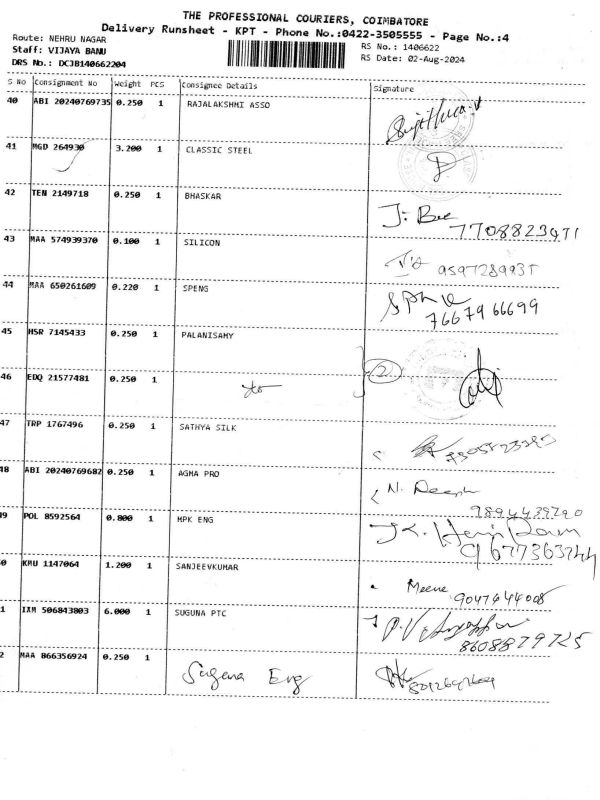 THE PROFESSIONAL COURIERS, COIMBATORE
Delivery Runsheet - KPT - Phone No.:0422-3505555 - Page No.:4
Route: NEHRU NAGAR
Staff: VIJAYA BANU
DRS No.: DCJB140662204
RS No.: 1406622
RS Date: 02-Aug-2024
S No Consignment No Weight PCS Consignee Details Signature
40 ABI 20240769735 0.250 1 RAJALAKSHMI ASSO
41 MGD 264930 3.200 1 CLASSIC STEEL
42 TEN 2149718 0.250 1 BHASKAR
7708823971
43 MAA 574939370 0.100 1 SILICON
44 MAA 650261609 0.220 1 SPENG
7667966699
45 HSR 7145433 0.250 1 PALANISAMY
2
46 EDQ 21577481 0.250 1
47 TRP 1767496 0.250 1 SATHYA SILK
48 ABI 20240769682 0.250 1 AGMA PRO
N. Deepa
9894439790
49 POL 8592564 0.800 1 MPK ENG
9677363744
0 KMU 1147064 1.200 1 SANJEEVKUMAR
Meena
9047444008
1 IXM 506843803 6.000 1 SUGUNA PTC
8608879725
2 MAA 866356924 0.250 1 Suguna Eng